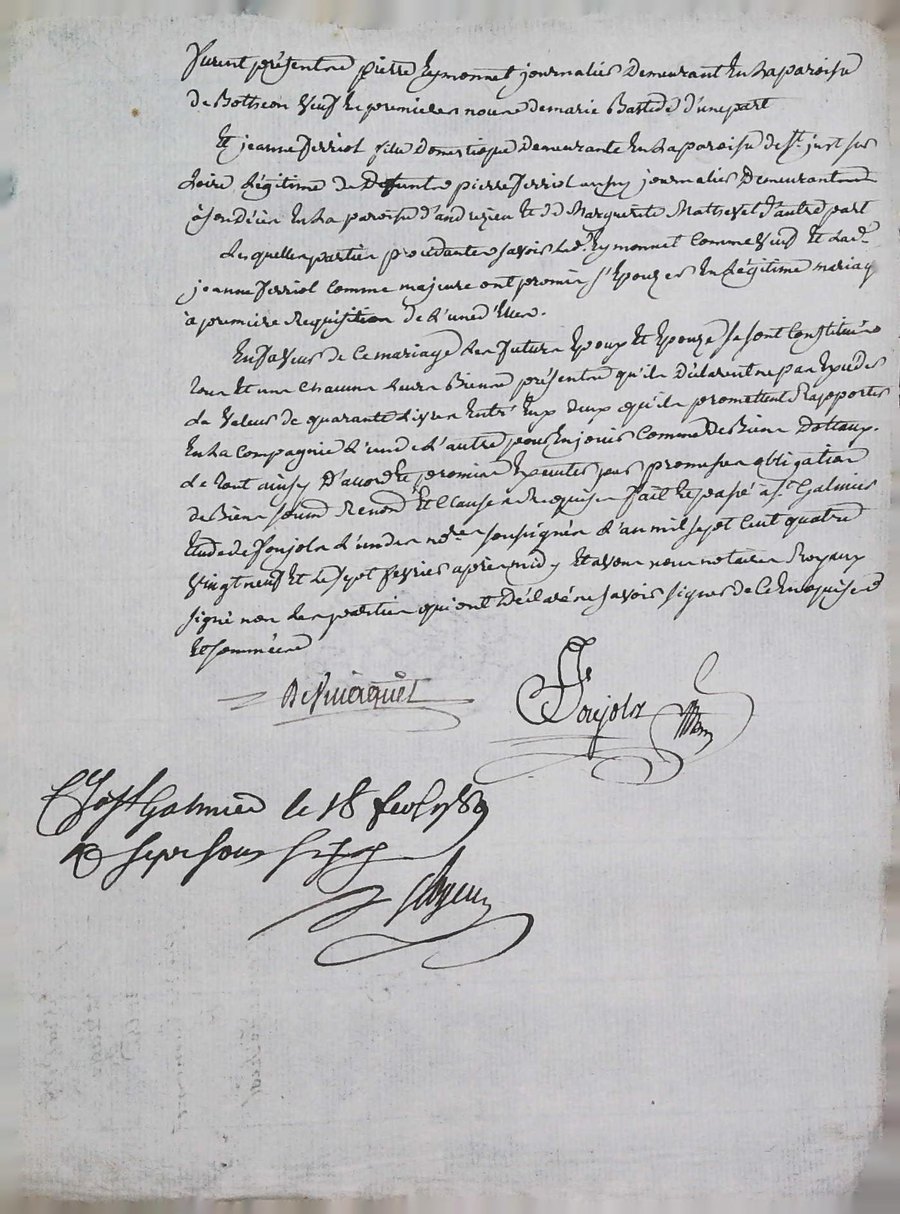 furent présents pierre Eymonnet journalier Demeurant En La paroisse
de Botheon Veuf En premieres noces de marie Bastide d'une part
Et jeanne ferriol fille Domestique Demeurante En La paroisse de St just sur
Loire Légitime de Deffunt pierre ferriol aussy journalier Demeurant
à son Décès En La paroisse d'andrezieu Et de Marguerite Mathevet d'autre part
Lesquelles parties procédantes sçavoir Led. Eymonnet Comme Veuf Et Lade.
jeanne ferriol Comme majeure ont promis s'Epouzer En Légitime mariage
à première Requisition de L'un d'Eux.
En faveur de Ce mariage Les futurs Epoux Et Epouze se sont Constitués
tous Et un Chacuns Leurs Biens présents qu'ils Déclarent
de Valeur de quarante Livres Entr'Eux deux qu'ils promettent Rapporter
En La Compagnie L'un de L'autre pour En jouir Comme De Biens Dotaux.
Le tout ainsy D'accord Et promis Executer sous promesses obligation
de Biens soumis Renond Et Clauses Requises fait Et passé à St. Galmier
Etude de foujols L'un des nores soussignés L'an mil sept Cent quatre
Vingt neuf Et Le Sept fevrier après midy Et avons nous notaires Royaux
signé non Les parties qui ont Déclaré ne sçavoir signer de Ce Enquises
Et sommées
foujols
St Galmier le 18 fevr 1789